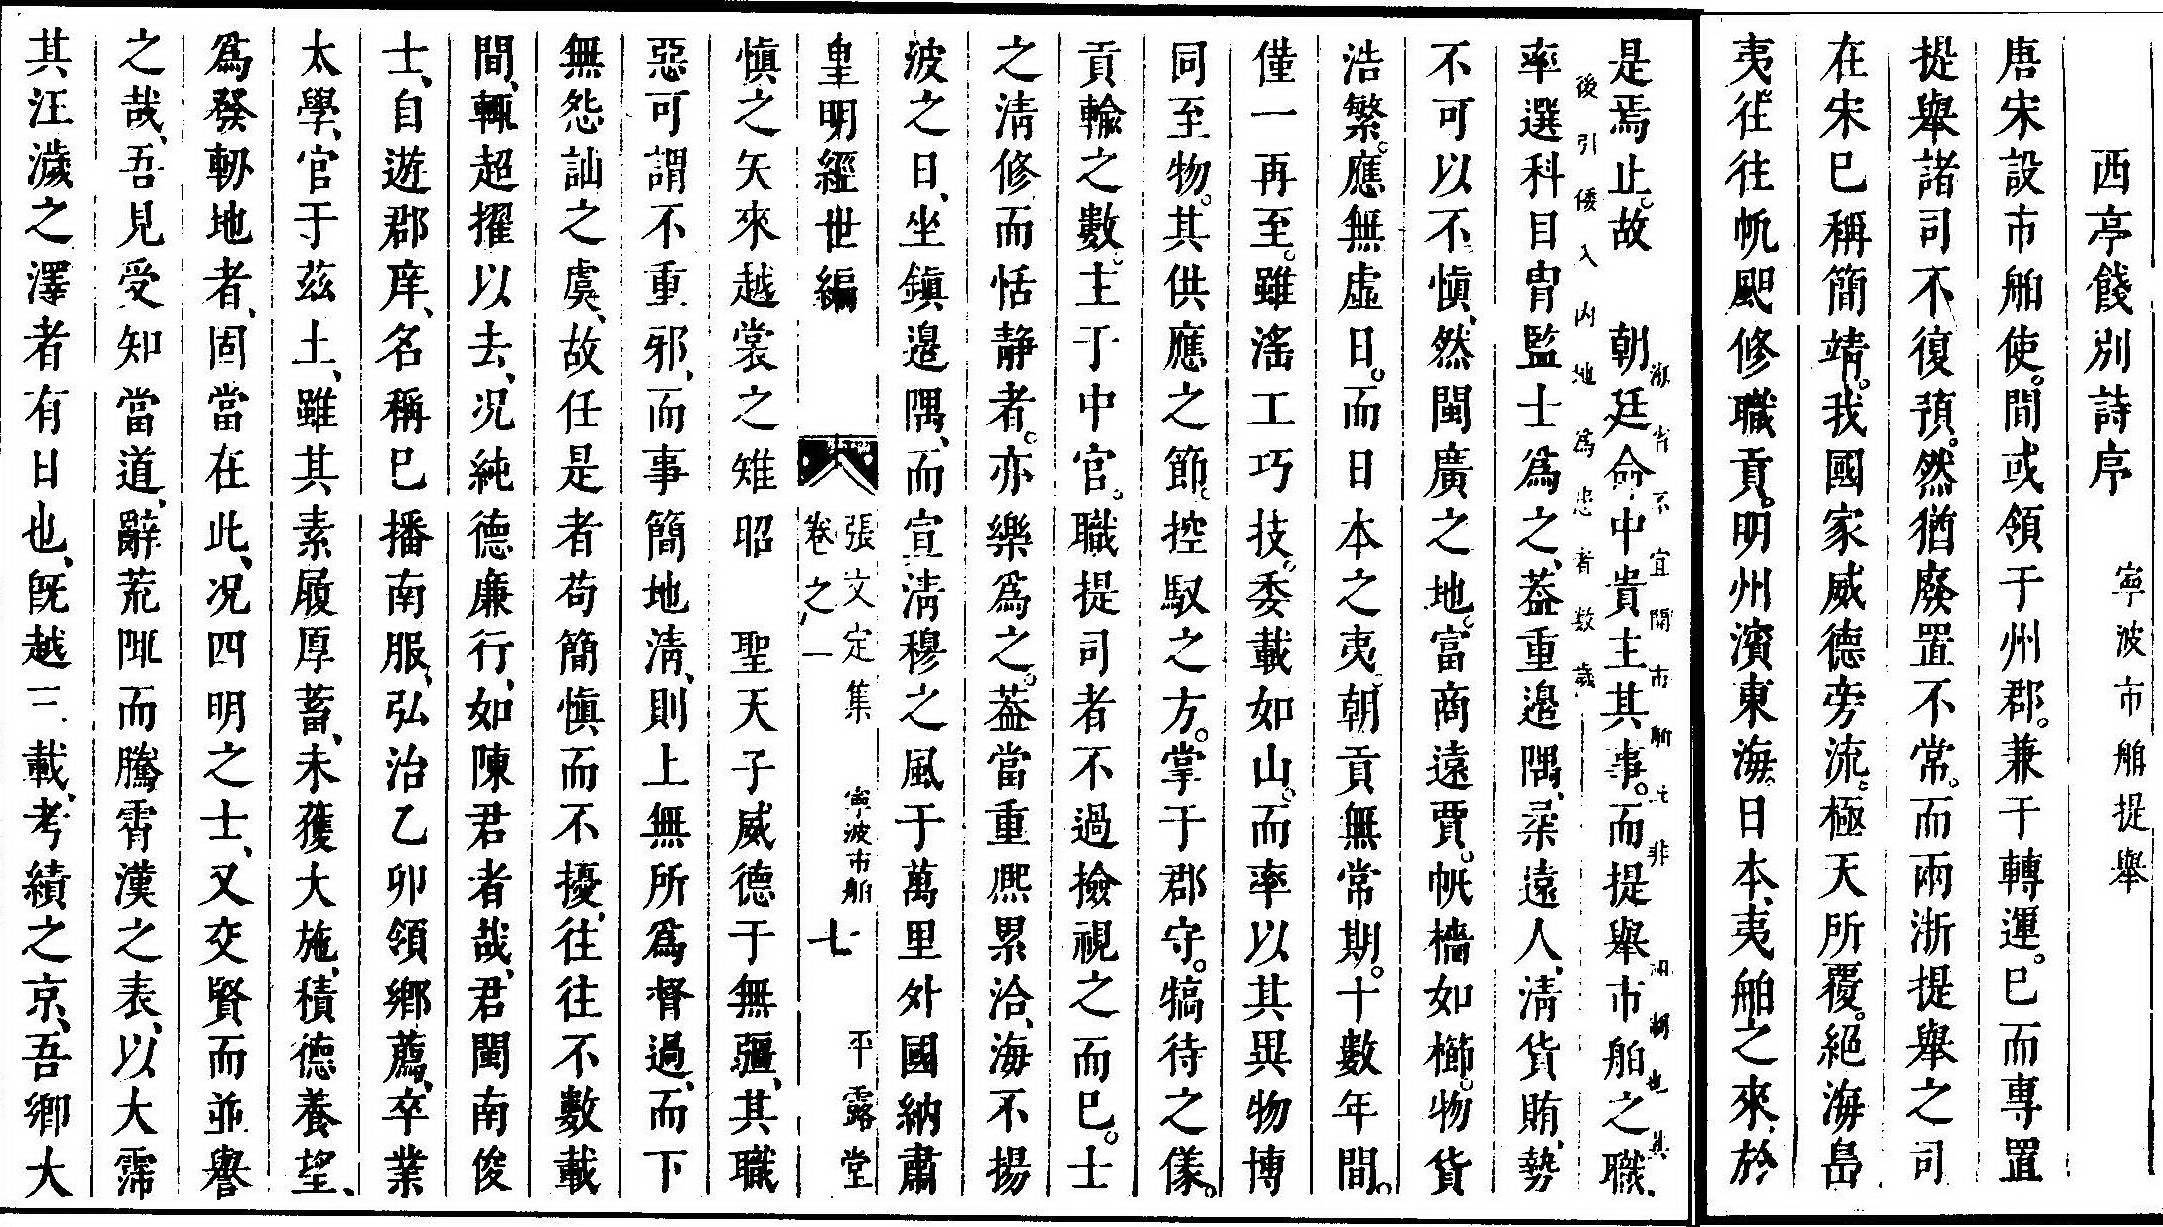 西亭餞別詩序 寧波市舶提舉
唐宋設市舶使。間或領于州郡。兼于轉運。已而專置
提舉諸司不復預。然猶廢置不常。而兩浙提舉之司
在宋已稱簡靖。我國家威德旁流。極天所覆。絕海島
夷。往往帆颶修職貢。明州濱東海。日本夷舶之來、於
是焉止。故 朝廷命中貴主其事。而提舉市舶之職、
後引倭入內地為患者數歲
率選科目胄監士為之、蓋重邊隅、柔遠人、清貨賄、勢
不可以不慎、然閩廣之地。富商遠賈。帆檣如櫛。物貨
浩繁。應無虛日。而日本之夷。朝貢無常期。十數年間。
僅一再至。雖滛工巧技。委載如山。而率以其異物博
同至物。其供應之節。控馭之方。掌于郡守。犒待之儀。
貢輸之數。主于中官。職提司者不過撿視之而已。士
之清修而恬靜者。亦樂為之。蓋當重熈累洽、海不揚
波之日、坐鎮邊隅、而宣清穆之風于萬里外國納肅
皇明經世編 張文定集 卷之一 寧波市舶 七 平露堂
慎之矢來越裳之雉 昭 聖天子威德于無疆、其職
惡可謂不重邪、而事簡地清、則上無所為督過、而下
無怨訕之虞、故任是者苟簡慎而不擾、往往不數載
間、輒超擢以去、况純德廉行、如陳君者哉、君閩南俊
士、自遊郡庠、名稱已播南服、弘治乙卯領鄉薦、卒業
太學、官于茲土、雖其素履厚蓄、未獲大施、積德養望、
為發軔地者、固當在此、况四明之士、又交賢而並譽
之哉、吾見受知當道、辭荒陬而騰霄漢之表、以大霈
其汪濊之澤者有日也、既越三載、考績之京、吾鄉大